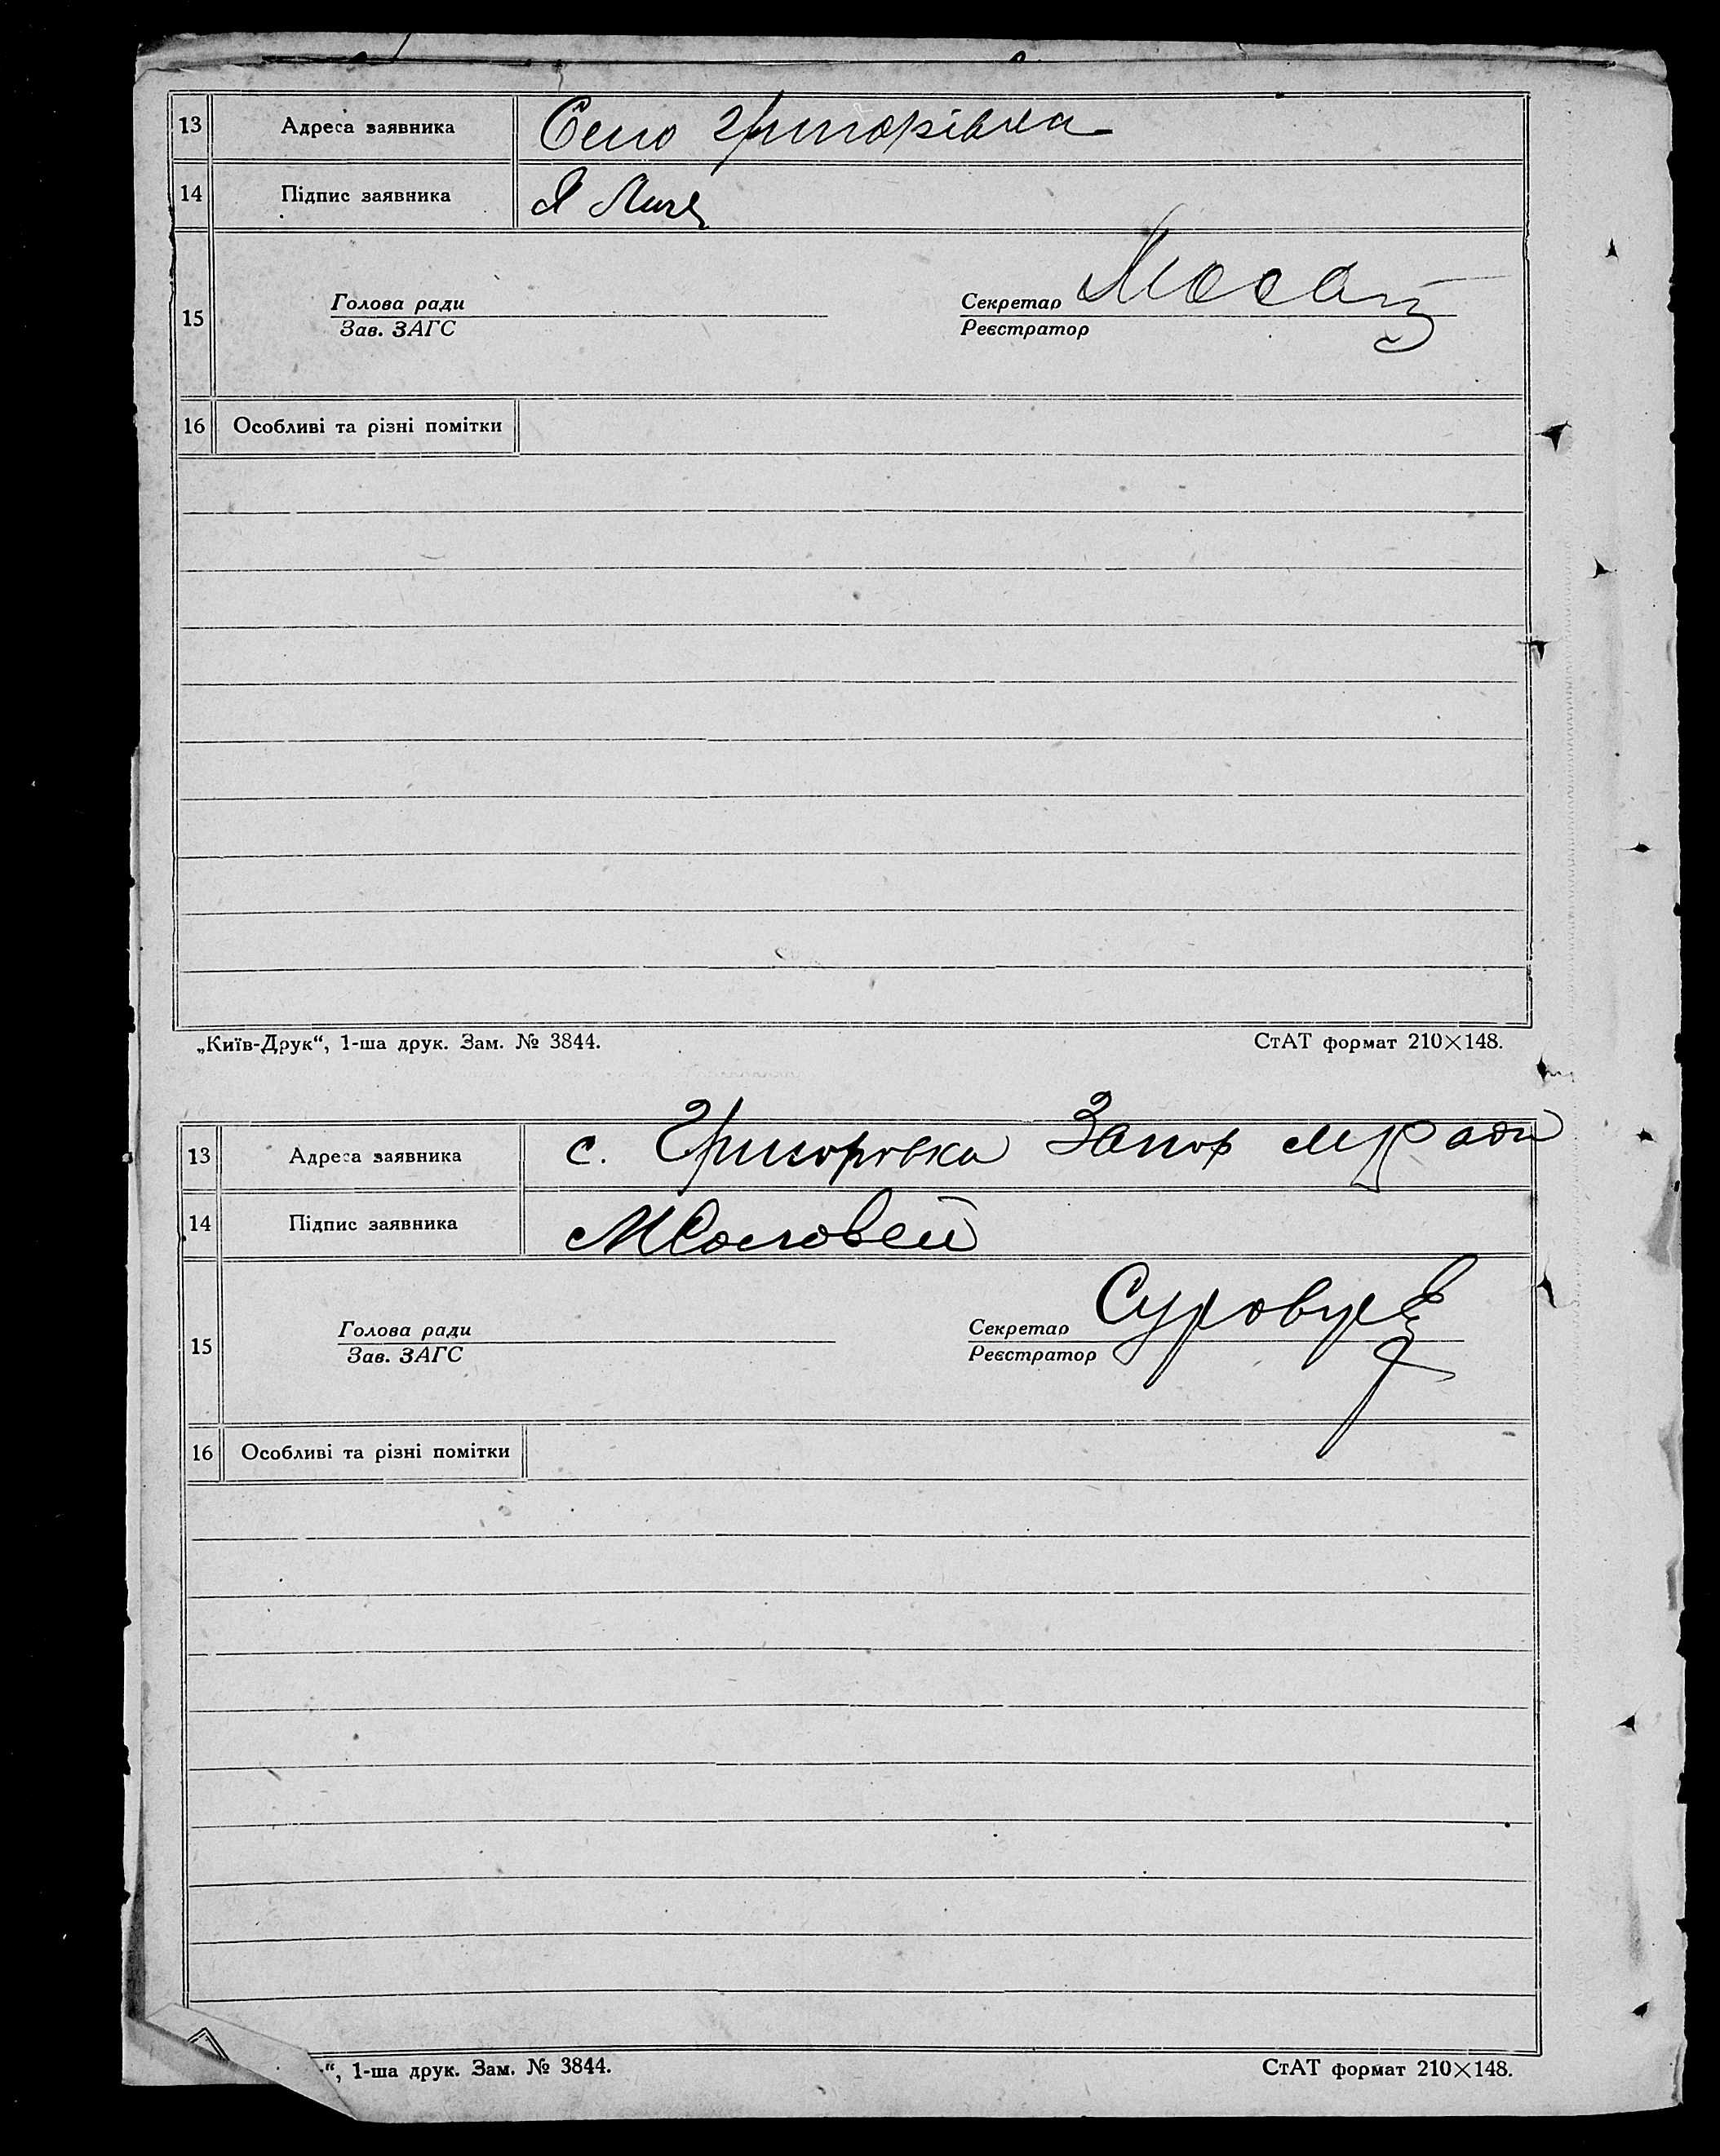 13 Адреса заявника Село Григорівка
14 Підпис заявника Я
15 Голова ради Секретар
Зав. ЗАГС Реєстратор
16 Особливі та різні помітки
„Київ-Друк“, 1-ша друк. Зам. № 3844. СтАТ формат 210×148.
13 Адреса заявника с. Григоровка Запор м/Ради
14 Підпис заявника МСоловей
15 Голова ради Секретар Суровце
Зав. ЗАГС Реєстратор
16 Особливі та різні помітки
“, 1-ша друк. Зам. № 3844. СтАТ формат 210×148.